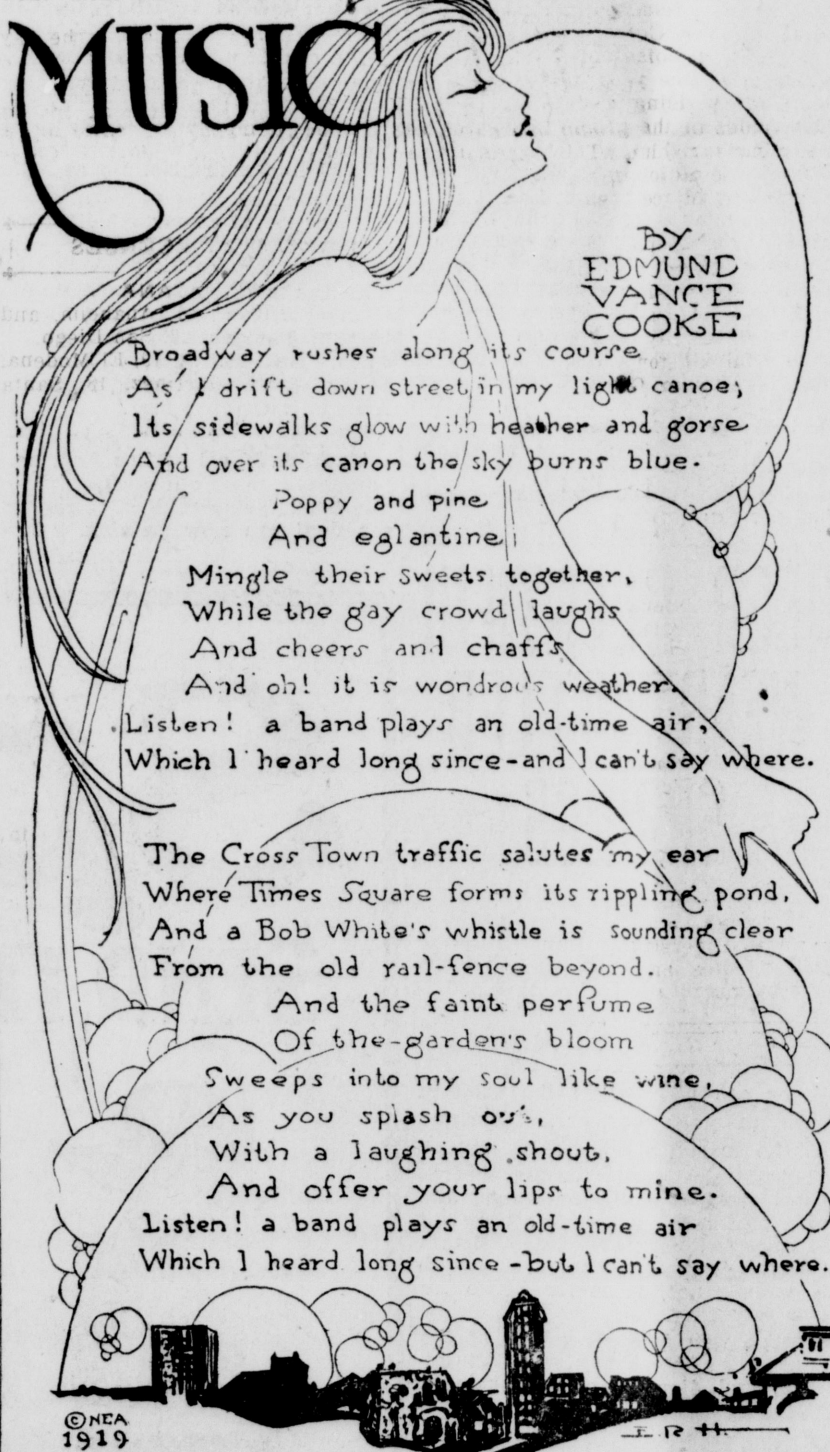 MUSIC
BY
EDMUND
VANCE
COOKE
Broadway rushes along its course
As I drift down street in my light canoe;
Its sidewalks glow with heather and gorse
And over its canon the sky burns blue.
Poppy and pine
And eglantine
Mingle their sweets together,
While the gay crowd laughs
And cheers and chaffs
And oh! it is wondrous weather.
Listen! a band plays an old-time air,
Which I heard long since-and I can't say where.
The Cross Town traffic salutes my ear
Where Times Square forms its rippling pond,
And a Bob White's whistle is sounding clear
From the old rail-fence beyond.
And the faint perfume
Of the-garden's bloom
Sweeps into my soul like wine,
As you splash out,
With a laughing shout,
And offer your lips to mine.
Listen! a band plays an old-time air
Which I heard long since-but I can't say where.
© NEA
1919
I R H